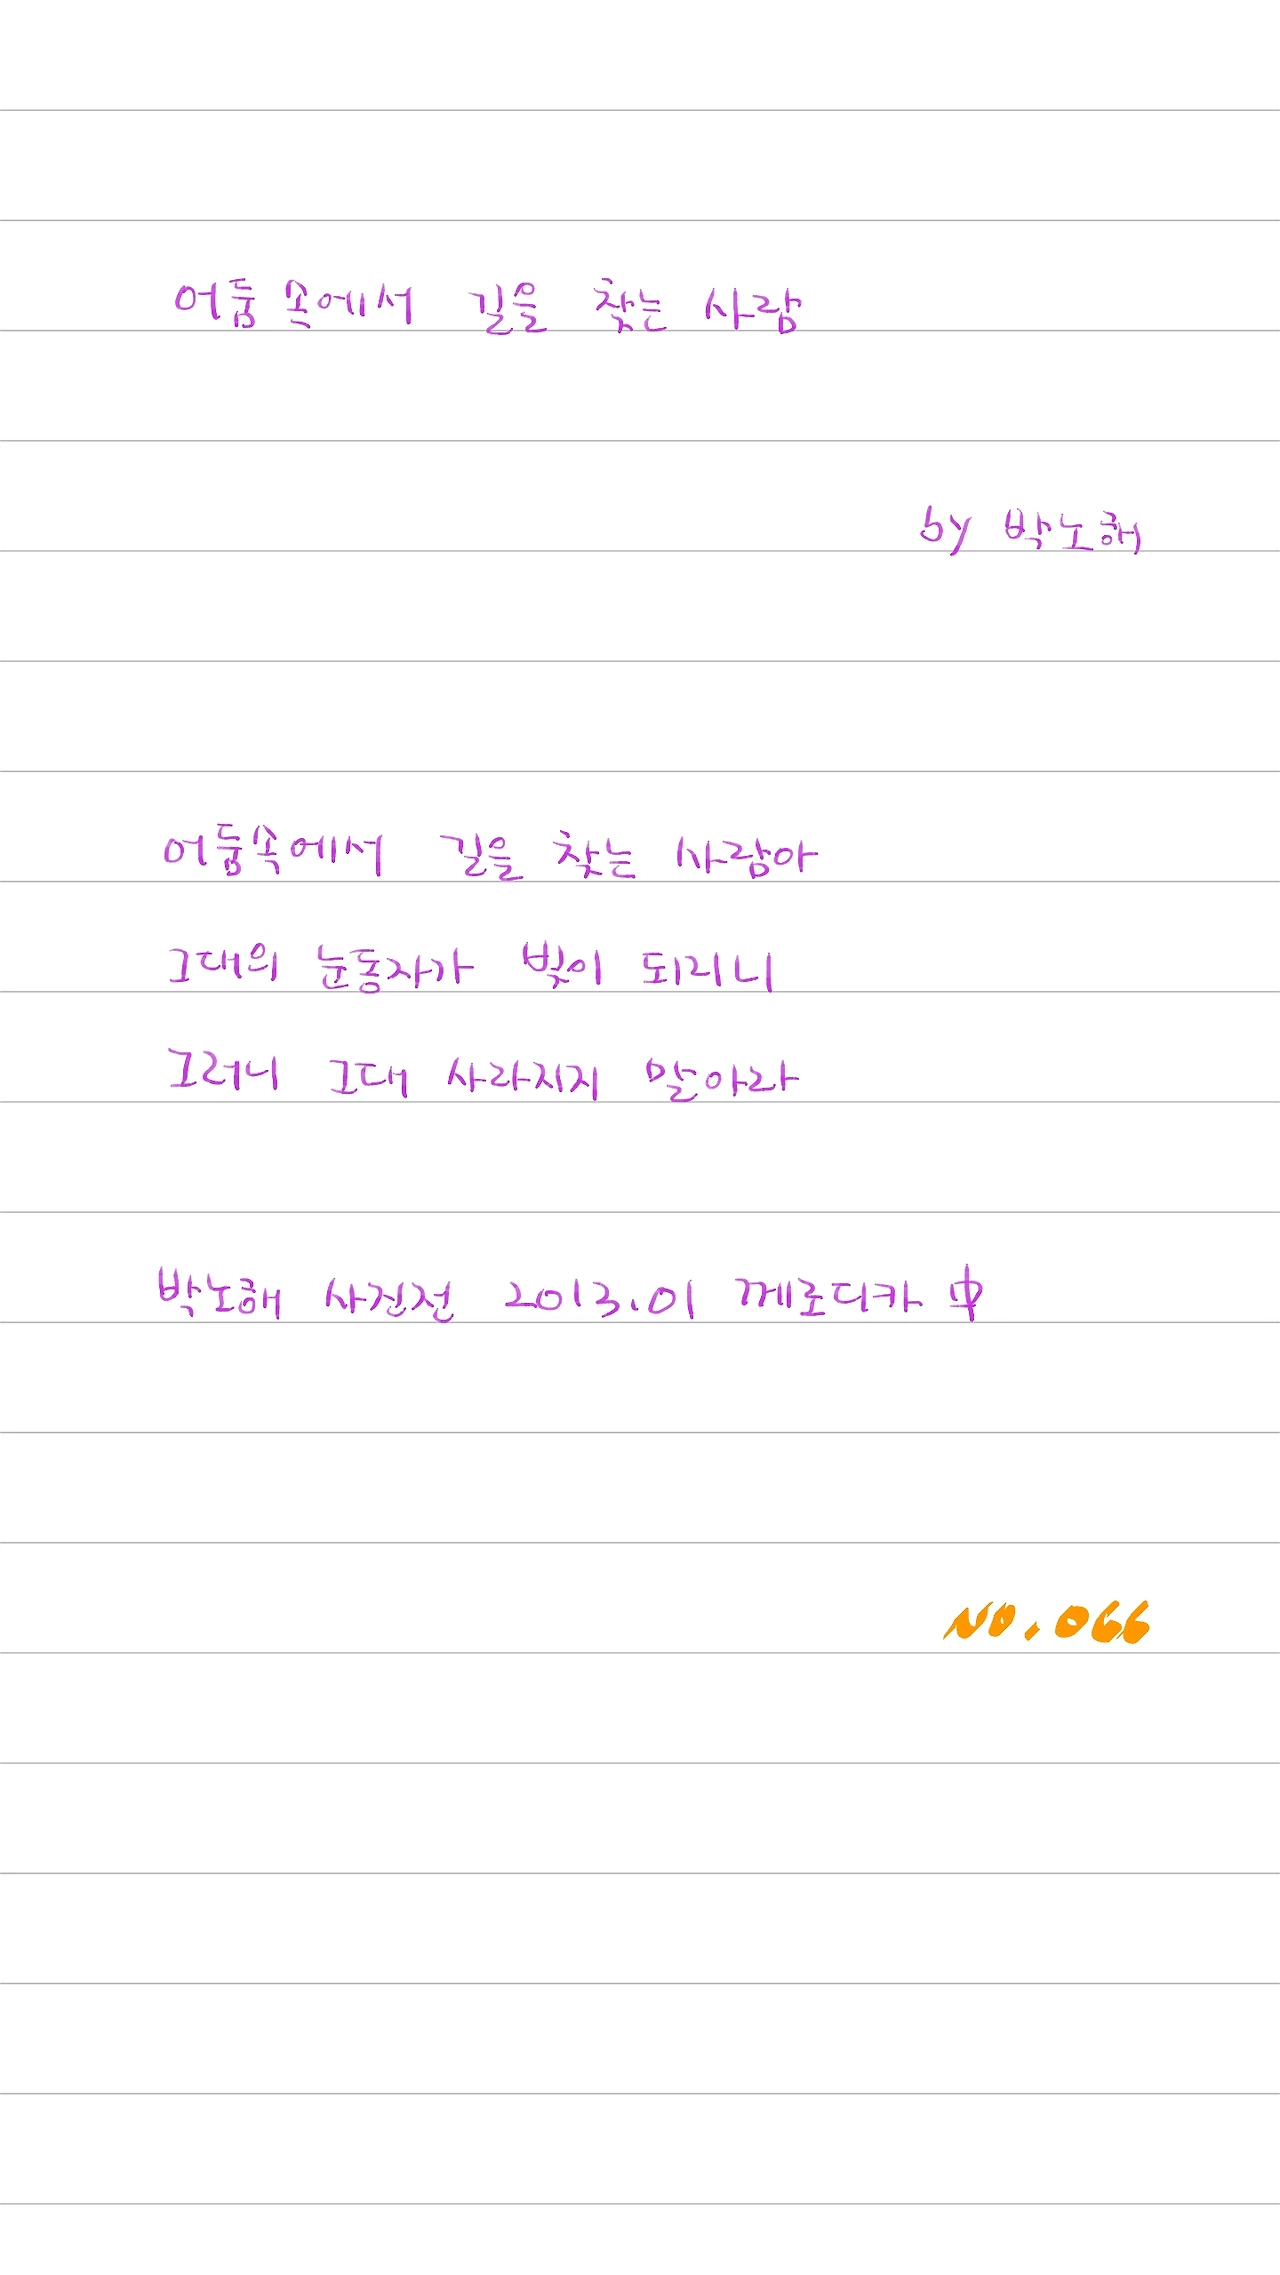 어둠 속에서 길을 찾는 사람
by 박노해
어둠속에서 길을 찾는 사람아
그대의 눈동자가 빛이 되리니
그러니 그대 사라지지 말아라
박노해 사진전 2013.01 께로티카 中
NO.066